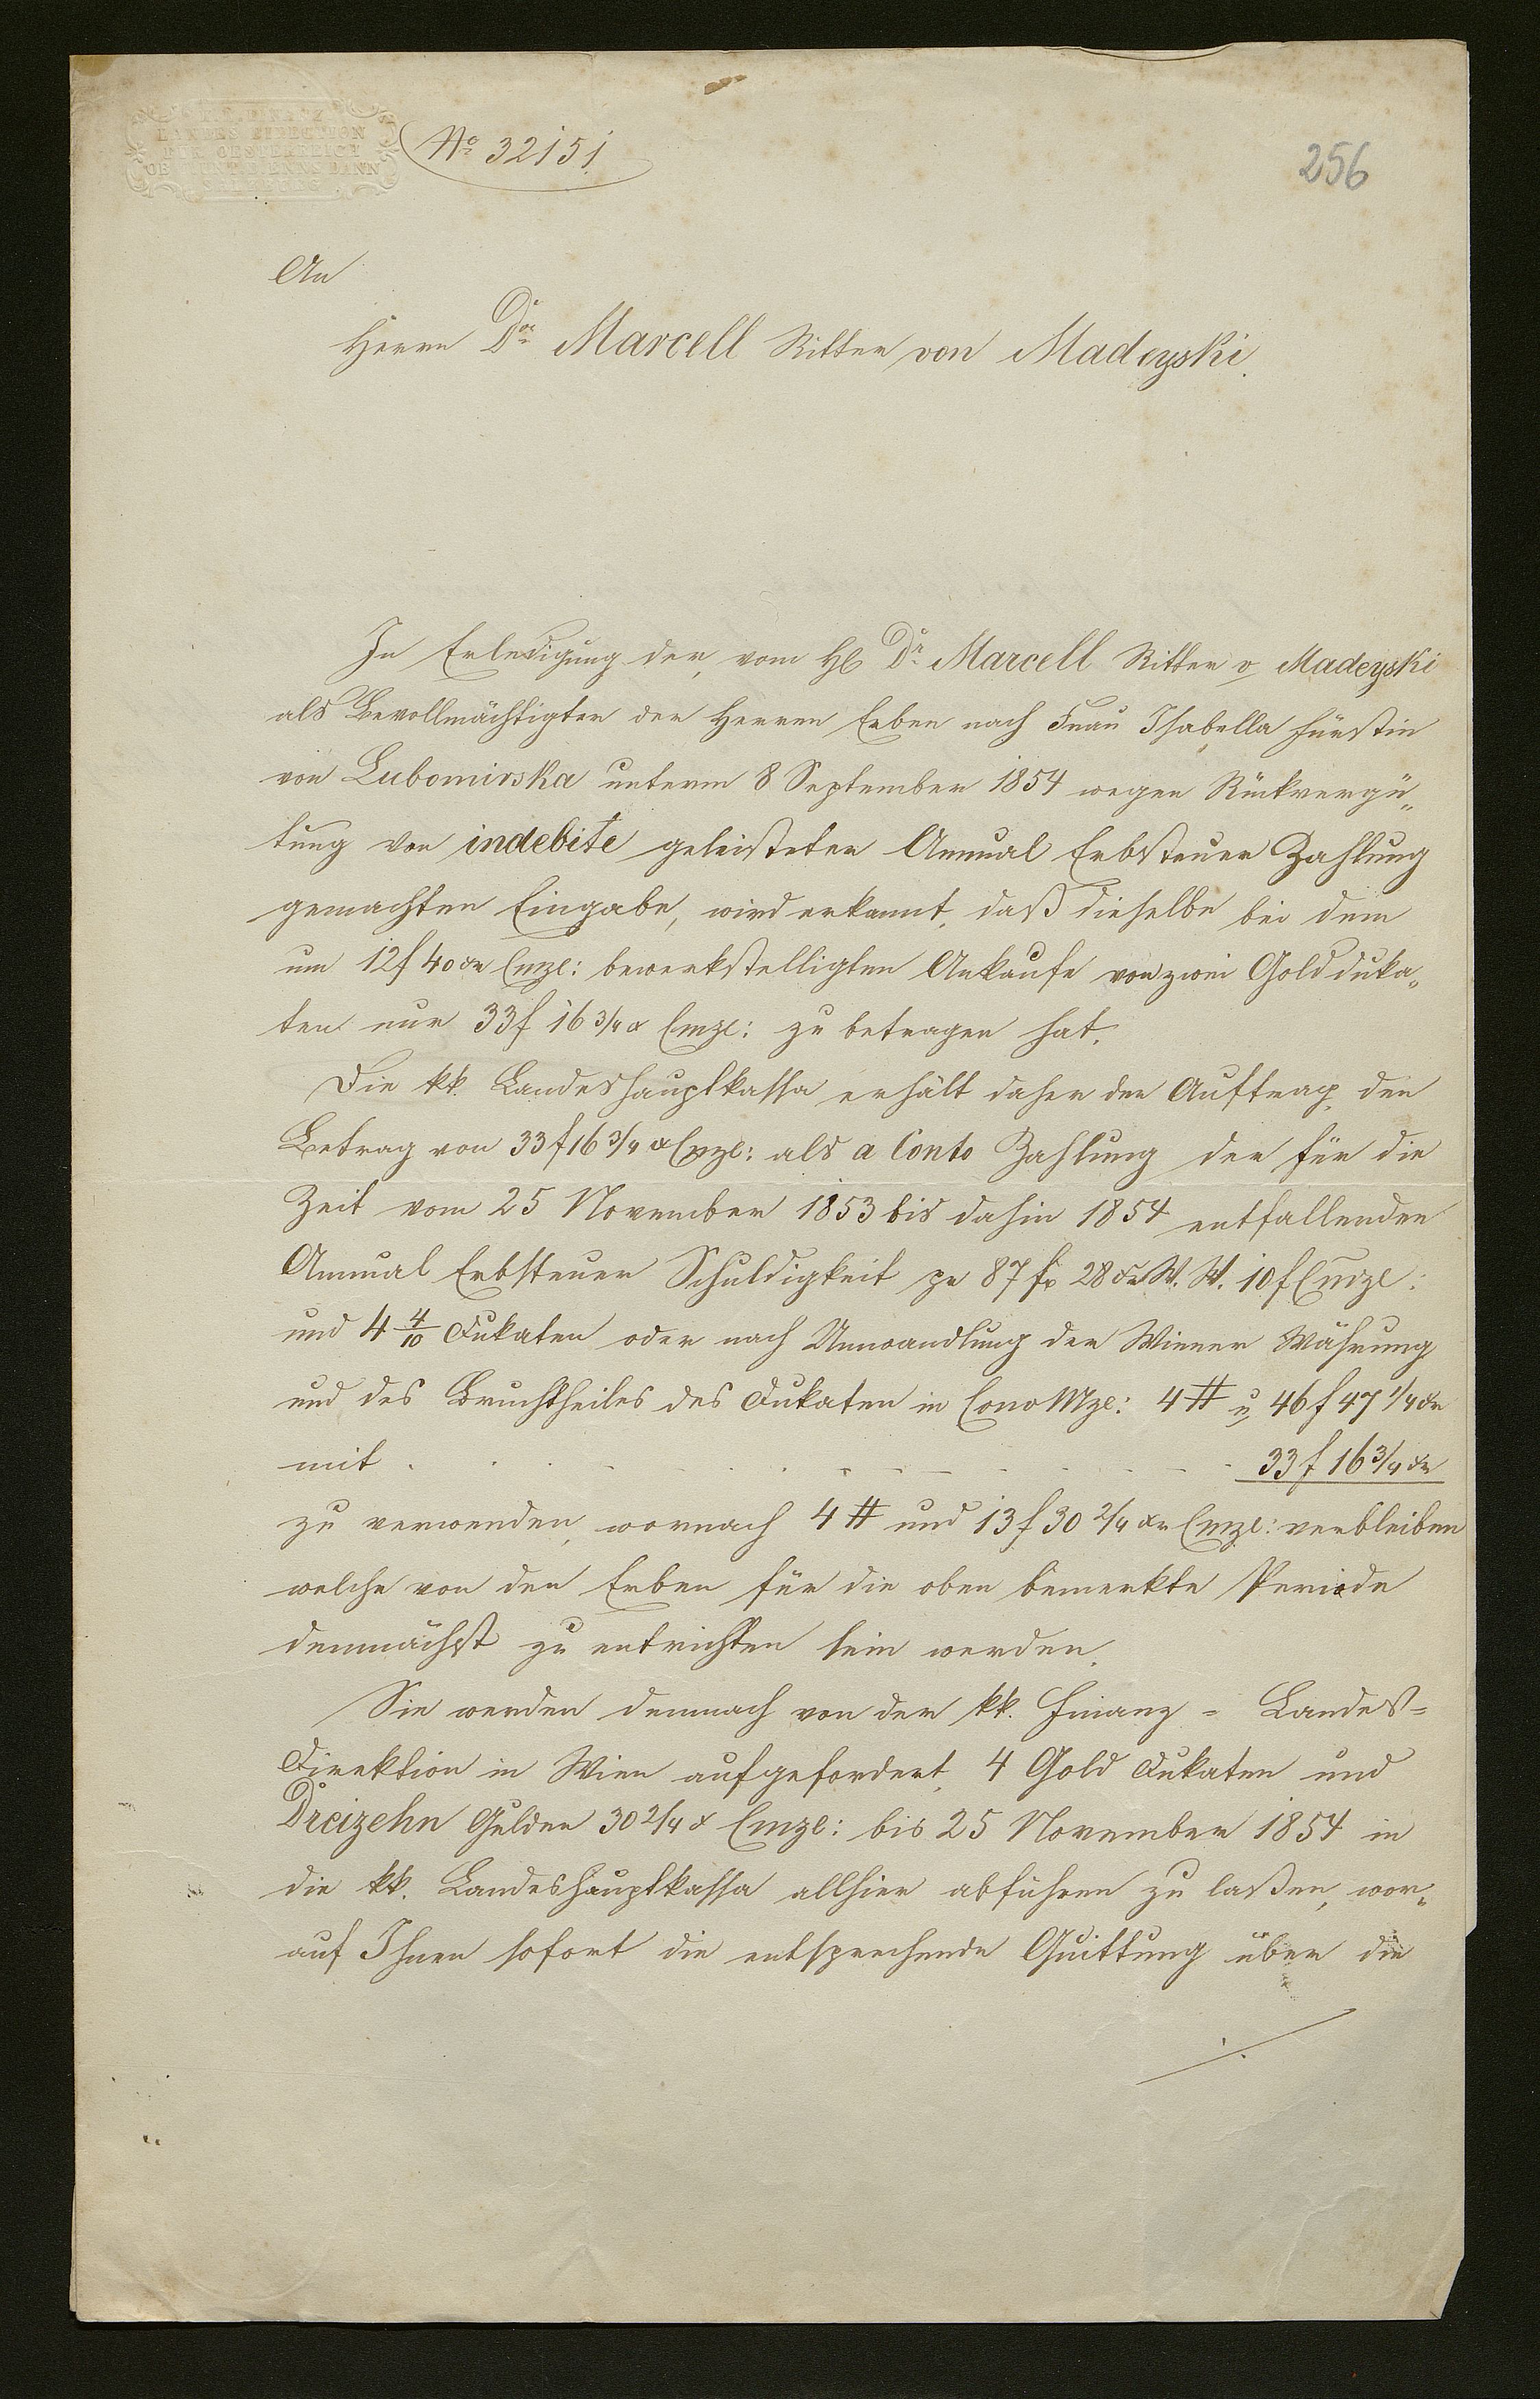 K. K. FINANZ
LANDES DIRECTION
OESTERREICH
OB U. UNT. D. ENNS
SALZBURG
No 32151
256
An
Herrn Dor Marcell Ritter von Madeyski.
In Erledigung der, vom H. Dr. Marcell Ritter v Madeyski
als Bevollmächtigter der Herren Erben nach Frau Isabella Fürstin
von Lubomirska unterm 8 September 1854 wegen Rückvergü„
tung von indebite geleisteter Annual Erbsteuer Zahlung
gemachten Eingabe, wird erkannt, daß dieselbe bei dem
um 12f 40xr Cmze: bewerkstelligten Ankaufe von zwei Goldduka„
ten nur 33f 16 3/4 x Cmze: zu betragen hat.
Die kk. Landeshauptkassa erhält daher den Auftrag, den
Betrag von 33f 16 3/4 x Cmze: als a Conto Zahlung der für die
Zeit vom 25 November 1853 bis dahin 1854 entfallenden
Annual Erbsteuer Schuldigkeit pr 87 fr 28 xr W. W. 10f Cmze:
und 4 4/10 Dukaten oder nach Umwandlung der Wiener Währung
und des Bruchtheiles des Dukaten in Conv Mze: 4 # u 46 f 47 1/4 xr
mit . . . . . . . . . . 33 f 16 3/4 xr
zu verwenden, wornach 4 # und 13 f 30 2/4 xr Cmze: verbleiben
welche von den Erben für die oben bemerkte Periode
demnächst zu entrichten sein werden.
Sie werden demnach von der kk. Finanz = Landes=
Direktion in Wien aufgefordert, 4 Gold Dukaten und
Dreizehn Gulden 30 2/4 x Cmze: bis 25 November 1854 in
die kk. Landeshauptkassa allhier abführen zu laßen, wor„
auf Ihnen sofort die entsprechende Quittung über die
./.